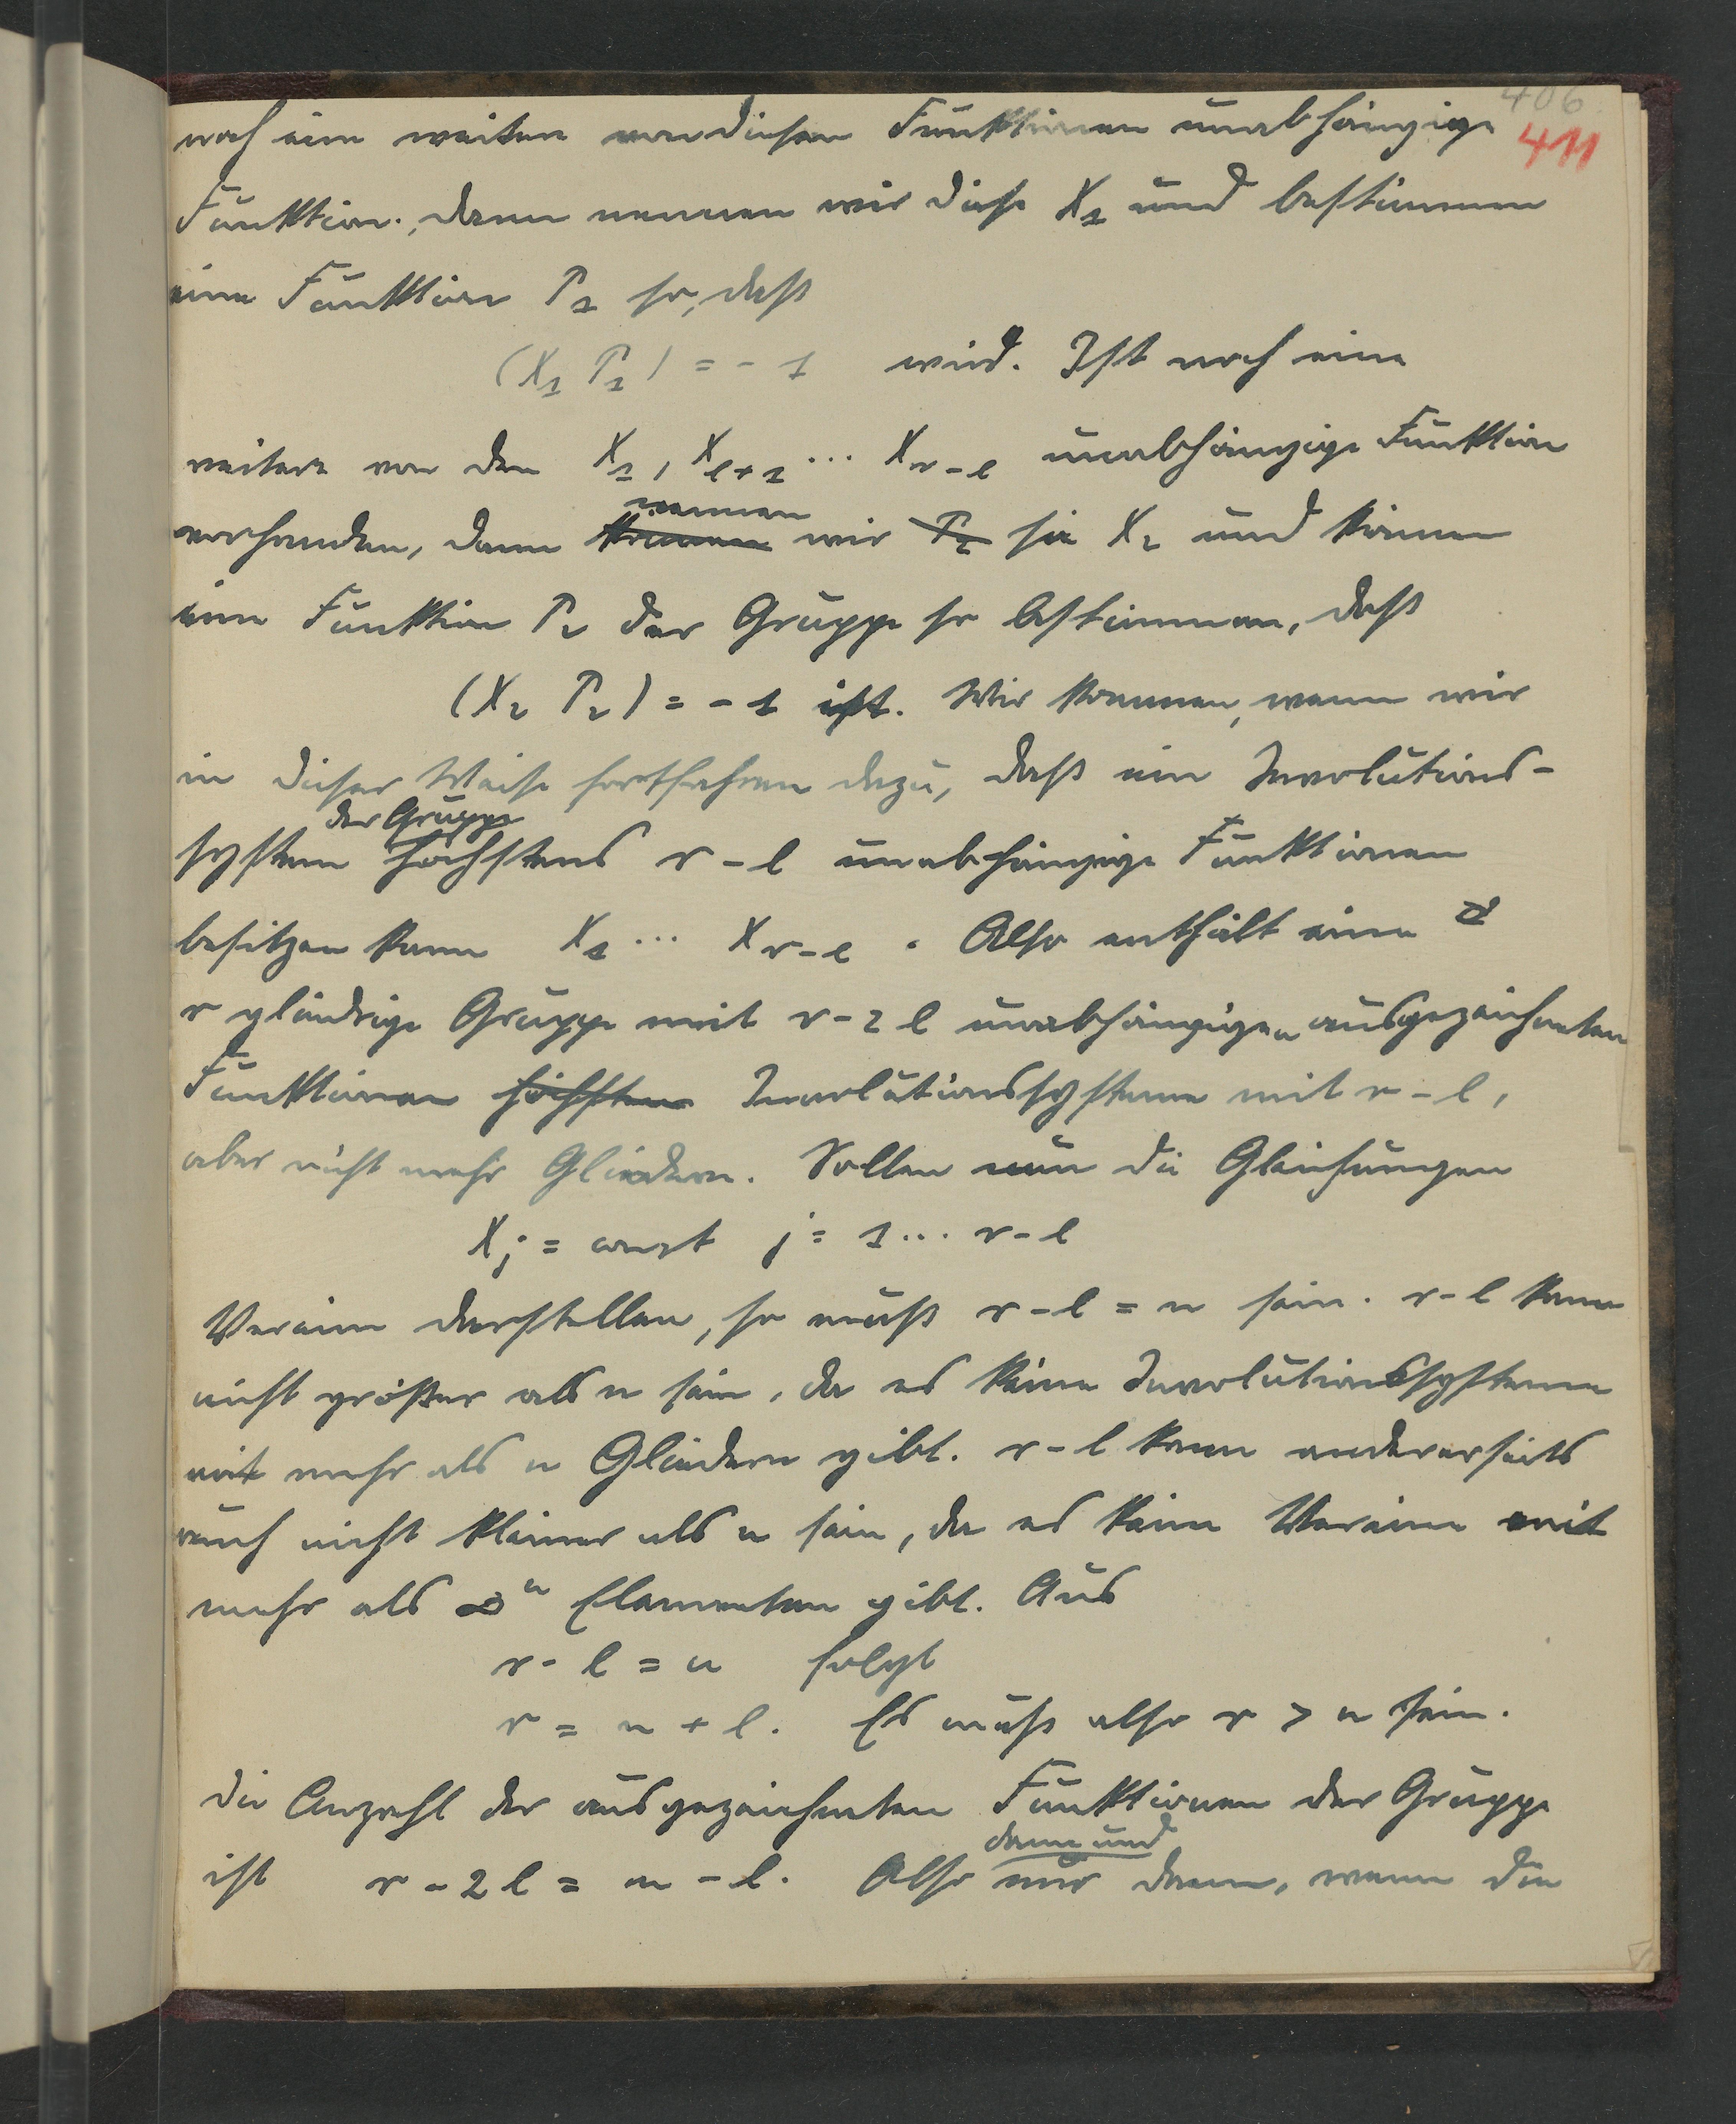 406
411
noch eine weitere von diesen Funktionen unabhängige
Funktion, dann nennen wir diese X_1 und bestimmen
eine Funktion P_1 so, daß
(X_1 P_1) = - 1 wird. Ist noch eine
weitere von den X_1, X_{l+1} ... X_{r-l} unabhängige Funktion
nennen
vorhanden, dann können wir P_2 sie X_2 und können
eine Funktion P_2 der Gruppe so bestimmen, daß
(X_2 P_2) = - 1 ist. Wir kommen, wenn wir
in dieser Weise fortfahren dazu, daß ein Involutions-
der Gruppe
system höchstens r - l unabhängige Funktionen
besitzen kann X_1 ... X_{r-l}. Also enthält eine
r gliedrige Gruppe mit r - 2 l unabhängigen ausgezeichneten
Funktionen höchstens Involutionssysteme mit r - l,
aber nicht mehr Gliedern. Sollen nun die Gleichungen
X_j = const j = 1 ... r - l
Vereine darstellen, so muß r - l = n sein. r - l kann
nicht größer als n sein, da es keine Involutionssysteme
mit mehr als n Gliedern gibt. r - l kann andererseits
auch nicht kleiner als n sein, da es keine Vereine mit
mehr als ∞^n Elementen gibt. Aus
r - l = n folgt
r = n + l. Es muß also r > n sein.
Die Anzahl der ausgezeichneten Funktionen der Gruppe
dann und
ist r - 2 l = n - l. Also nur dann, wenn die